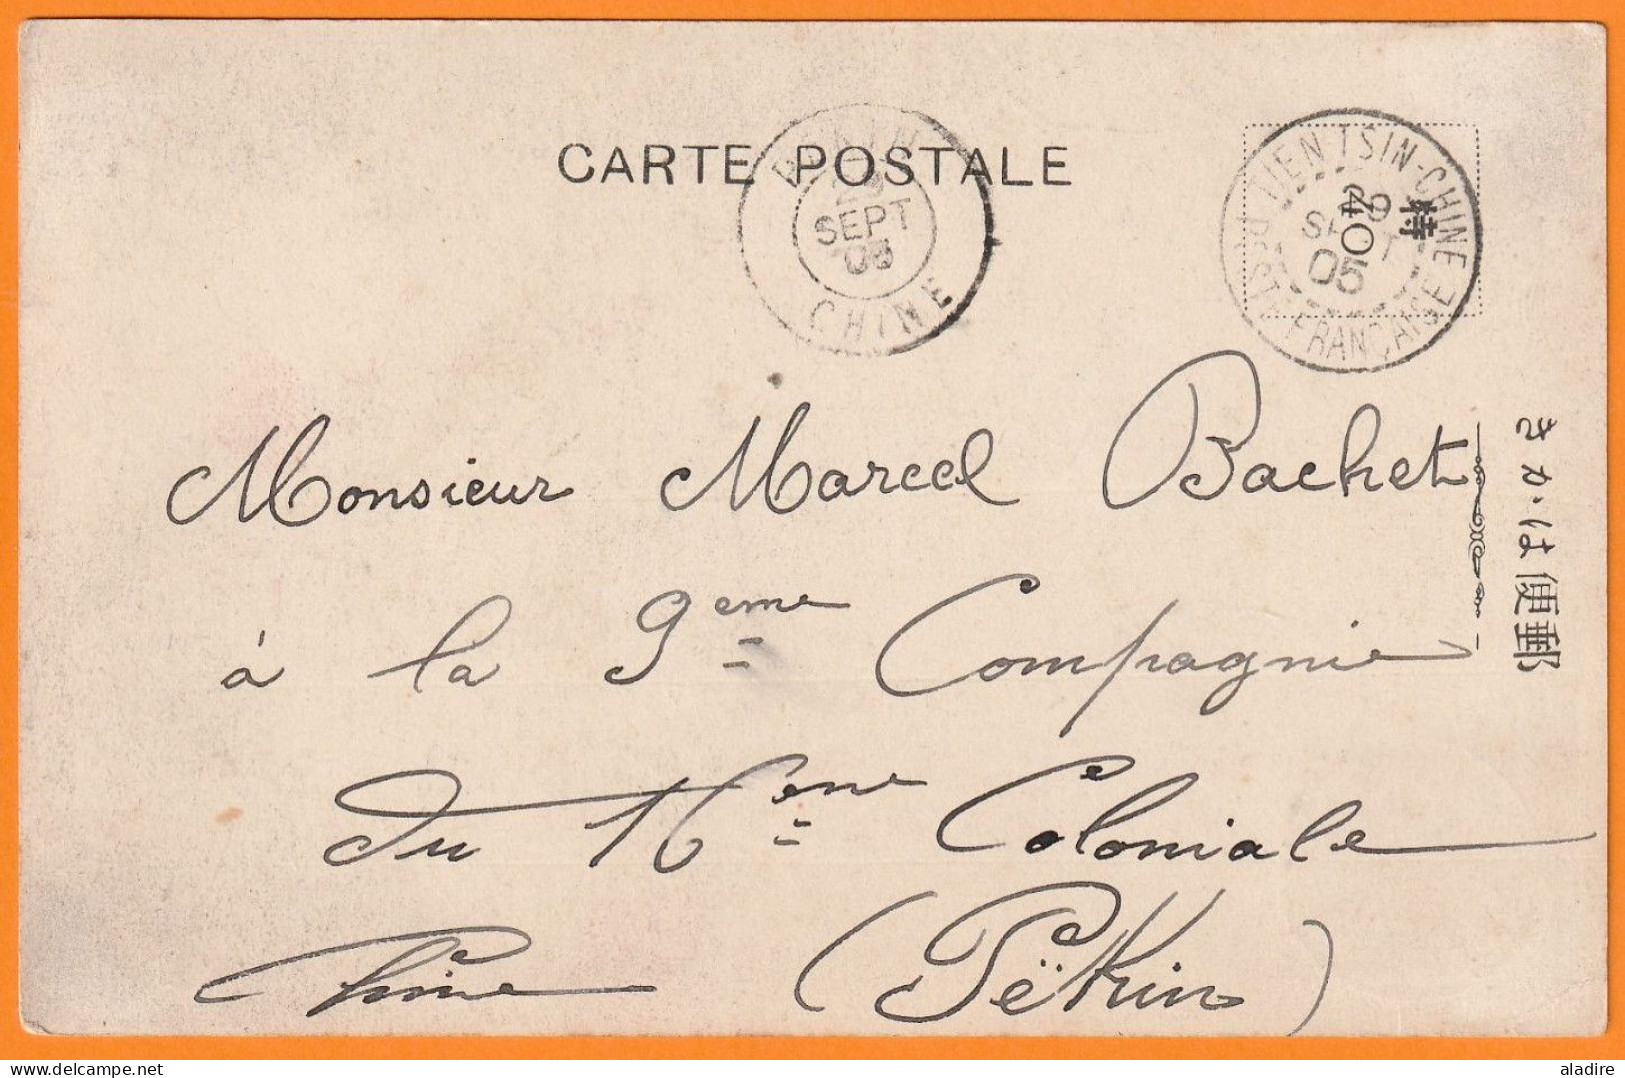 CARTE POSTALE
SEPT
05
CHINE
TIENTSIN-CHINE
SEPT
05
POSTE FRANÇAISE
特40
きかは便郵
Monsieur Marcel Bachet
à la 9eme Compagnie
du 16eme Coloniale
Chine (Pëkin)
aladire